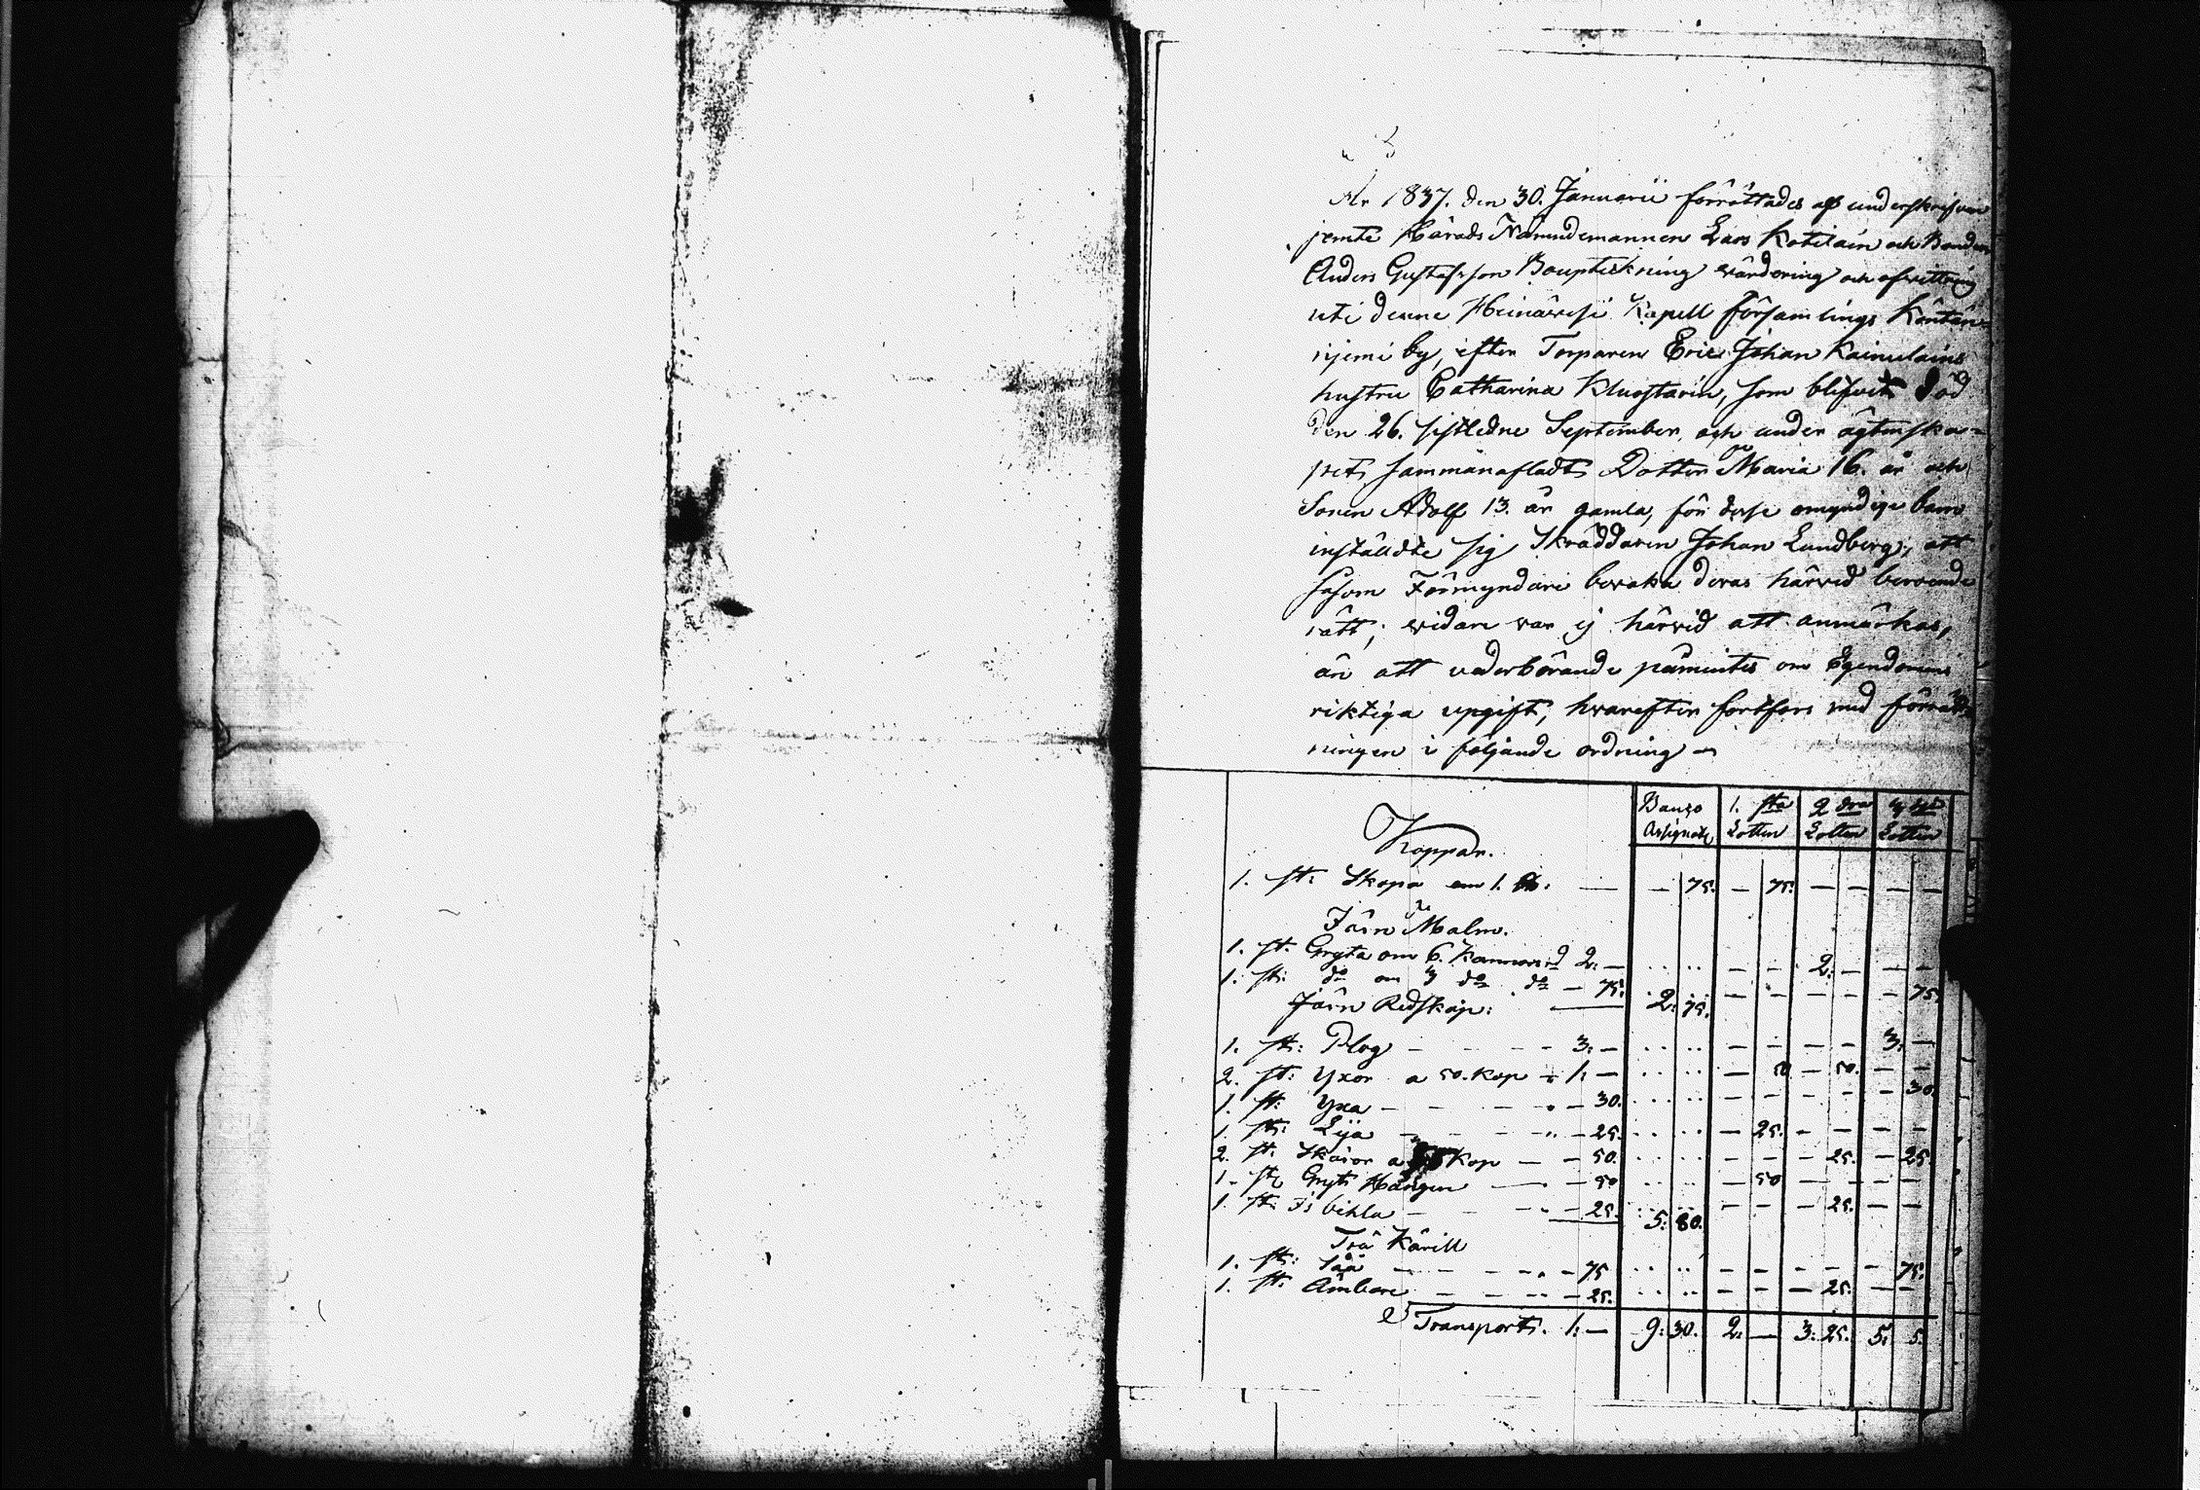 År 1837. den 30. Januarii förrättades af underskrifven
jemte Härads Nämndemannen Lars Kotilain och Bonden
Anders Gustafsson Boupteckning värdering och afvittring
uti denne Heinävesi Kapell församlings Kontan=
njemi by, efter Torparen Eric Johan Kainulains
hustru Catharina Kluastarin, som blifvit död
den 26. sistledne September, och under ägtenska=
pet sammanafladt Dottern Maria 16. år och
Sonen Adolf 13. år gamla, för desse omyndige barn
instäldte sig Skräddaren Johan Lundberg, att
såsom Förmyndare bevaka deras härvid beroende
rätt; vidare var ej härvid att anmärkas,
än att vederbörande påmintes om Egendomens
riktiga upgift, hvarefter fortfors med förrätt
ningen i följande ordning
Banco Assignat. 1. sta Lotten 2 dra Lotten 3 dje Lotten
Koppar.
1. st: Skopa om 1. — — 75. — 75. — — — —
Järn Malm.
1. st. Gryta om 6. Kannors rd 2: — .. .. — — 2: — — —
1. st: do om 3 do do — 75: 2: 75. — — — — — 75.
Järn Redskap:
1. st: Plog — — — 3: — .. .. — — — — 3: —
2. st: Yxor a 50. Kop 1: — .. .. — 50 — 50. — —
1. st: Yxa — — — 30. .. .. — — — — — 30.
1. st: Lija — — — 25. .. .. — 25. — — — —
2. st: Skäror a Kop — — 50. .. .. — — — 25. — 25.
1. st Gryt Hängen — — 50 .. .. — 50 — — — —
1. st: Is bihla — — — 25. 5: 80. — — — 25. — —
Trä Kärill
1. st: Såå — — — 75 .. .. — — — — — 75.
1. st. Ämbare — — — 25. .. .. — — — 25. — —
Transport. 1: — 9: 30. 2: — 3: 25. 5: 5.